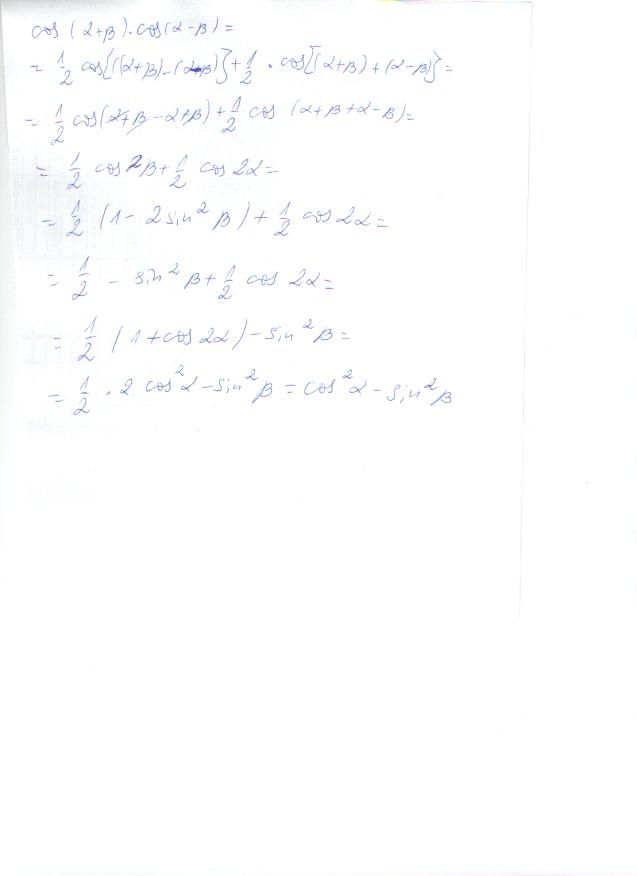 cos(α+β)·cos(α-β)=
= 1/2 cos{(α+β)-(α-β)}+1/2·cos[(α+β)+(α-β)}=
= 1/2 cos(α+β-α+β)+1/2 cos (α+β+α-β)=
= 1/2 cos2β+1/2 cos 2α=
= 1/2 (1- 2sin²β)+1/2 cos2α=
= 1/2 - sin²β+1/2 cos 2α=
= 1/2 (1+cos2α)-sin²β=
= 1/2 · 2 cos²α-sin²β=cos²α-sin²β